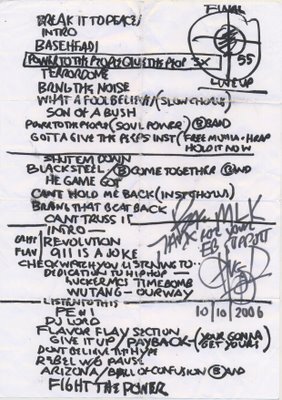 BREAK IT TO PEACE/
INTRO
BASEHEAD/
POWER TO THE PEOPLE GIVE THE PEEP 3X
TERRORDOME
BRING THE NOISE
WHAT A FOOL BELIEVE/(SLOW CHORUS)
SON OF A BUSH
POWER TO THE PEOPLE (SOUL POWER) BAND
GOTTA GIVE THE PEEPS INST (FREE MUMIA + H RAP
HOLD IT NOW
FINAL
55
LINE UP
SHUT EM DOWN
BLACK STEEL/B/COME TOGETHER BAND
HE GAME GOT
CANT HOLD ME BACK (INST SHOW)
BRING THAT BEAT BACK
CANT TRUSS IT
INTRO—
REVOLUTION
FLAV 911 IS A JOKE
CHECK WHAT YOU LISTENING TO
DEDICATION TO HIP HOP—
SUCKER MCS TIMEBOMB
WU TANG — OUR WAY
LISTEN TO THIS
PE #1
DJ LORD
FLAVOR FLAV SECTION
GIVE IT UP/PAYBACK-(YOUR GONNA
GET YOURS)
DONT BELIEVE THE HYPE
REBEL W/O PAUSE
ARIZONA/BALL OF CONFUSION BAND
FIGHT THE POWER
THANX FOR YOUR
10/10/2006